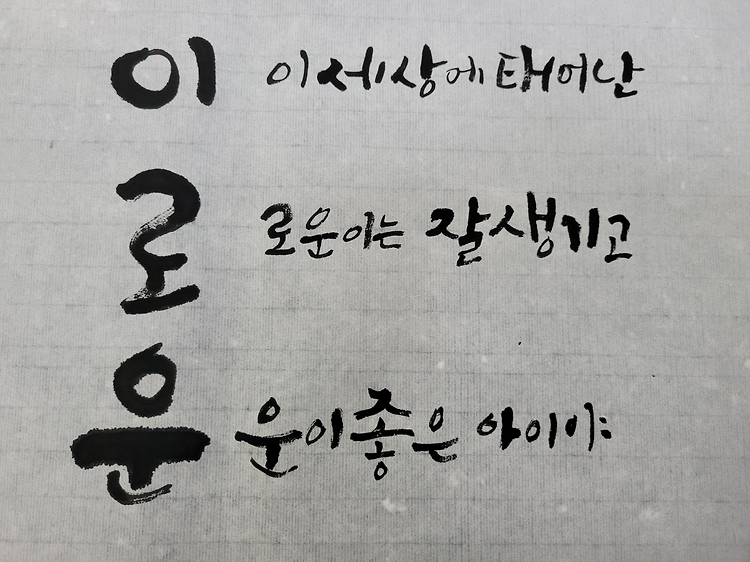 이 이세상에태어난
로 로운이는 잘생기고
운 운이좋은 아이야